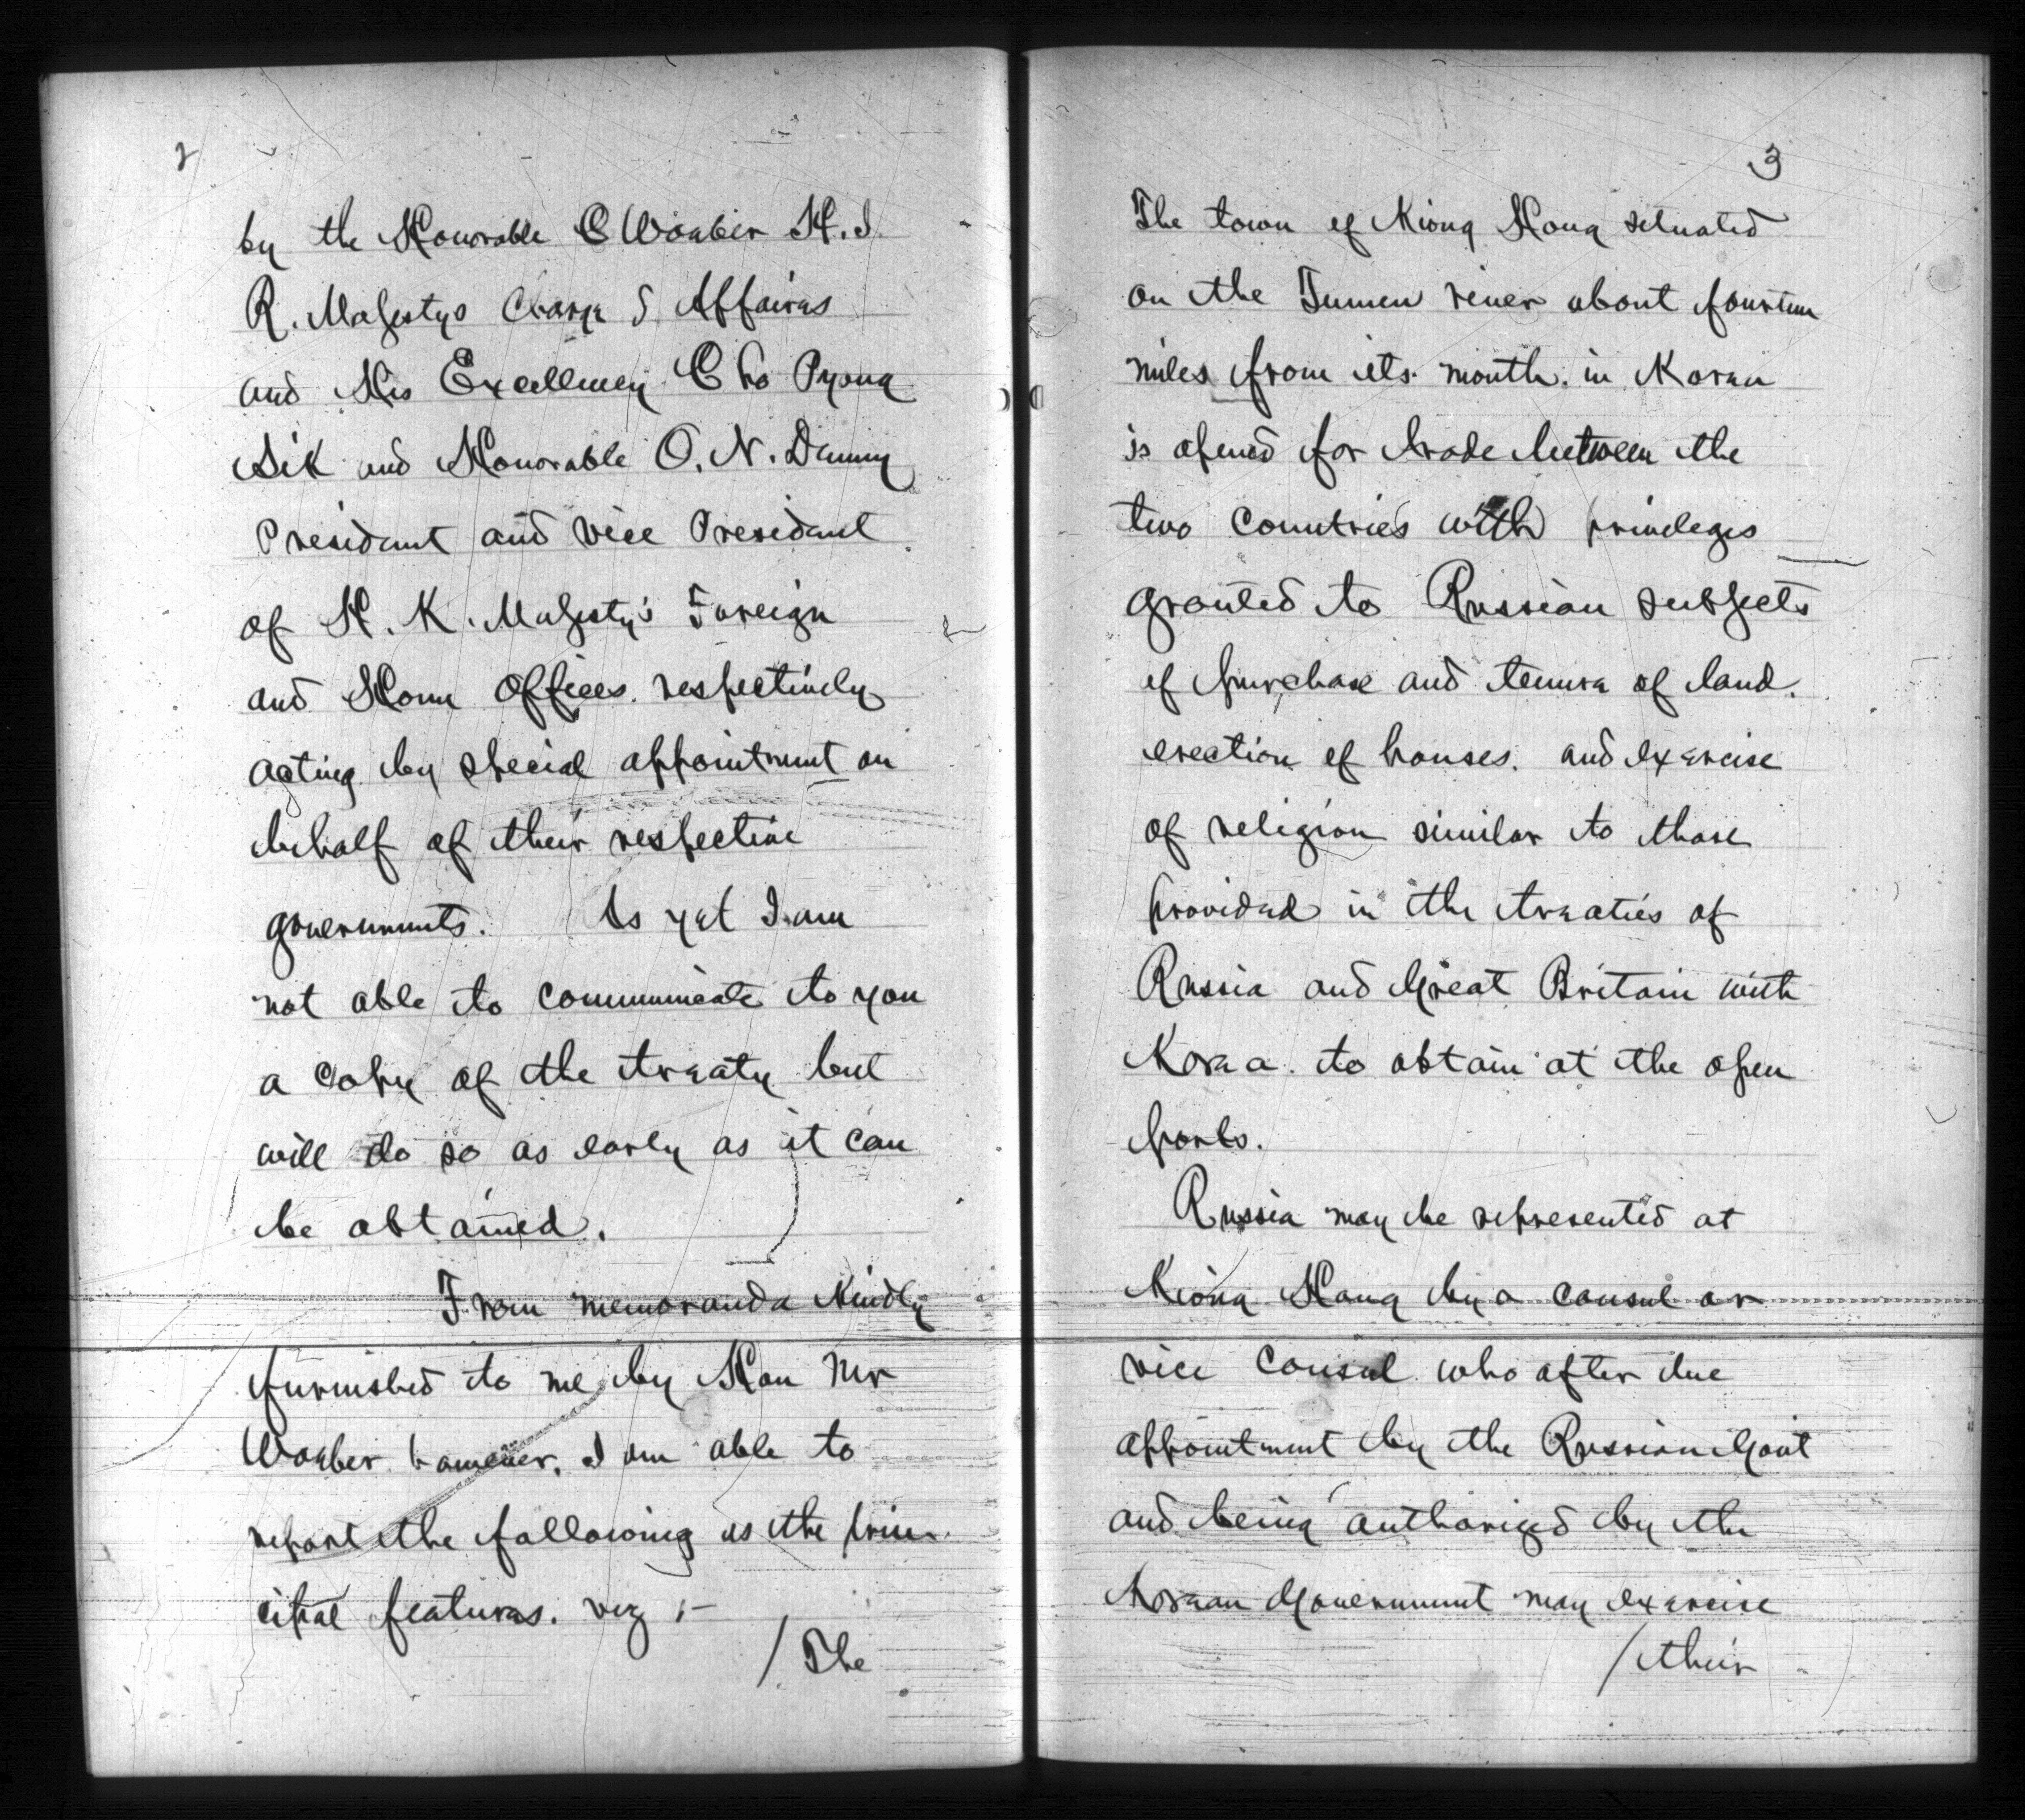 2
by the Honorable C Waeber H. I.
R. Majestys Charge d Affaires
and His Excellency Cho Pyong
Sik and Honorable O. N. Denny
President and vice President
of H. K. Majesty's Foreign
and Home Offices. respectively
acting by special appointment on
behalf of their respective
governments. As yet I am
not able to communicate to you
a copy of the treaty but
will do so as early as it can
be obtained.
From memoranda kindly
furnished to me by Hon Mr
Waeber however, I am able to
report the following as the prin-
cipal features. viz :-
/ The
3
The town of Kiong Hong situated
on the Tumen river about fourteen
miles from its mouth. in Korea
is opened for trade between the
two countries with privileges
granted to Russian subjects
of purchase and tenure of land.
erection of houses. and exercise
of religion similar to those
provided in the treaties of
Russia and Great Britain with
Korea. to obtain at the open
ports.
Russia may be represented at
Kiong Hong by a consul or
vice consul who after due
appointment by the Russian Govt
and being authorized by the
Korean Government may exercise
/ their